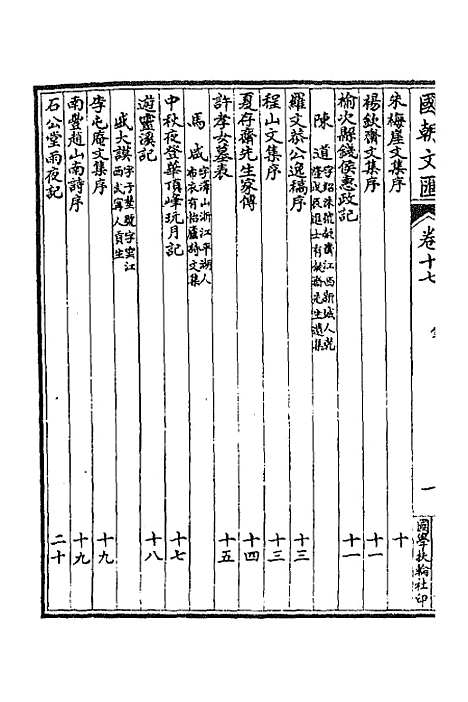 國朝文匯 卷十七 一 國學扶輪社印
朱梅崖文集序 十
楊欽齋文集序 十一
榆次縣錢侯惠政記 十一
陳道 字紹洙號凝齋江西新城人乾隆戊辰進士有凝齋先生遺集
羅文恭公逸稿序 十三
程山文集序 十三
夏存齋先生家傳 十四
許孝女墓表 十五
馬咸 字澤山浙江平湖人布衣有怡廬詩文集
中秋夜登華頂峰玩月記 十七
遊靈溪記 十八
戚大謨 字子楚號字雲江西武寧人貢生
李屯庵文集序 十九
南豐趙山南詩序 十九
石公堂雨夜記 二十